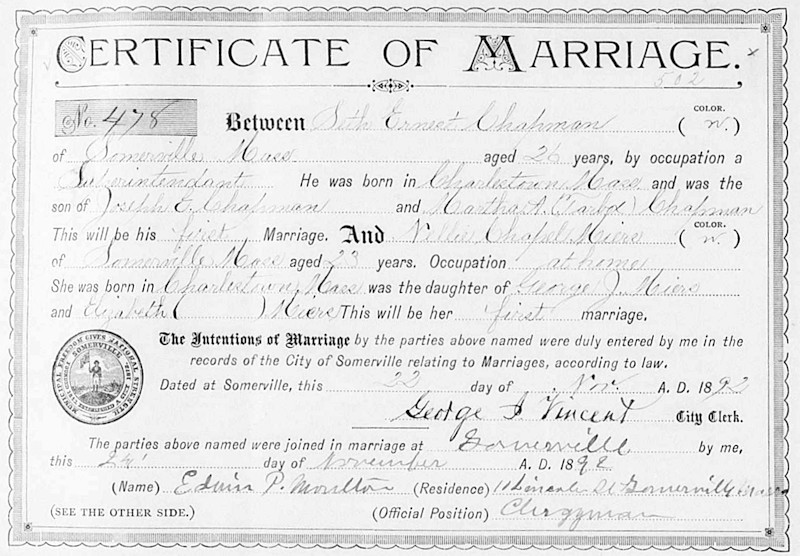 CERTIFICATE OF MARRIAGE.
502
COLOR.
No. 478 Between Seth Ernest Chapman ( W. )
of Somerville Mass aged 26 years, by occupation a
Superintendant He was born in Charlestown Mass and was the
son of Joseph E. Chapman and Martha A. ( ) Chapman
COLOR.
This will be his first Marriage. And Nellie Chapel Miers ( W. )
of Somerville Mass aged 23 years. Occupation at home
She was born in Charlestown Mass was the daughter of George J. Miers
and Elizabeth ( ) Miers This will be her first marriage.
The Intentions of Marriage by the parties above named were duly entered by me in the
records of the City of Somerville relating to Marriages, according to law.
Dated at Somerville, this 22 day of Nov. A. D. 1892
George I. Vincent City Clerk.
MUNICIPAL FREEDOM GIVES NATIONAL STRENGTH
SOMERVILLE
The parties above named were joined in marriage at Somerville by me,
this 24' day of November A. D. 1892
(Name) Edwin P. Moulton (Residence) 11 Lincoln St Somerville Mass
(SEE THE OTHER SIDE.) (Official Position) Clergyman